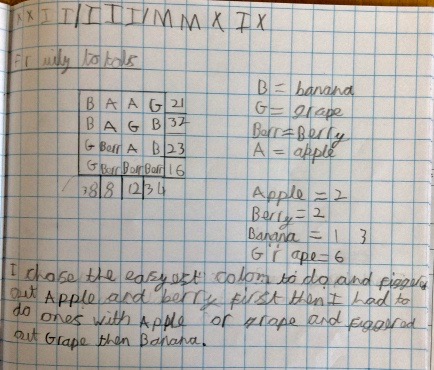 XXII/III/MMXIX
Fruity totals
B A A G 21
B A G B 32
G Berr A B 23
G Berr Berr Berr 16
38 8 12 34
B = banana
G = grape
Berr = Berry
A = apple
Apple = 2
Berry = 2
Banana = 13
Grape = 6
I chose the easyest colom to do and figgerd
out Apple and berry first then I had to
do ones with Apple or grape and figgered
out Grape then Banana.